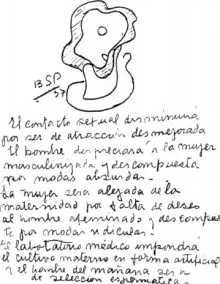 BSP
57
El contacto sexual disminuirá
por ser de atracción desmejorada
El hombre despreciará a la mujer
masculinizada y descompuesta
por modas absurdas.-
La mujer será alejada de la
maternidad por falta de deseo
al hombre afeminado y descompues
to por modas ridículas.-
El laboratorio médico impondrá
el cultivo materno en forma artificial
y el hombre del mañana será
de selección espermática.-